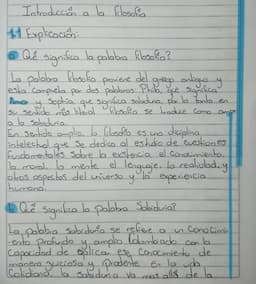 Introducción a la filosofía
1.1 Explicación:
a Qué significa la palabra filosofía?
La palabra filosofía proviene del griego antiguo y
esta compuesta por dos palabras: Philo, que significa
Amor y Sophia, que significa sabiduria, por lo tanto en
su sentido más literal filosofia se traduce como amor
a la sabiduria.
En sentido amplio, la filosofía es una disciplina
intelectual que se dedica al estudio de cuestiones
fundamentales sobre la existencia, el conocimiento,
la moral, la mente, el lenguaje, la realidad, y
otros aspectos del universo y la experiencia
humana.
b Qué significa la palabra Sabiduria?
La palabra sabiduria se refiere a un conocimi-
ento profundo y amplio combinado con la
capacidad de aplicar ese conocimiento de
manera juiciosa y prudente en la vida
cotidiana, la sabiduria va mas allá de la